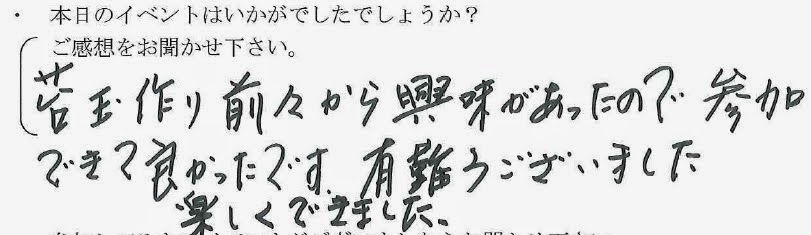 ・ 本日のイベントはいかがでしたでしょうか？
ご感想をお聞かせ下さい。
苔玉作り前々から興味があったので参加
できて良かったです。有難うございました
楽しくできました。